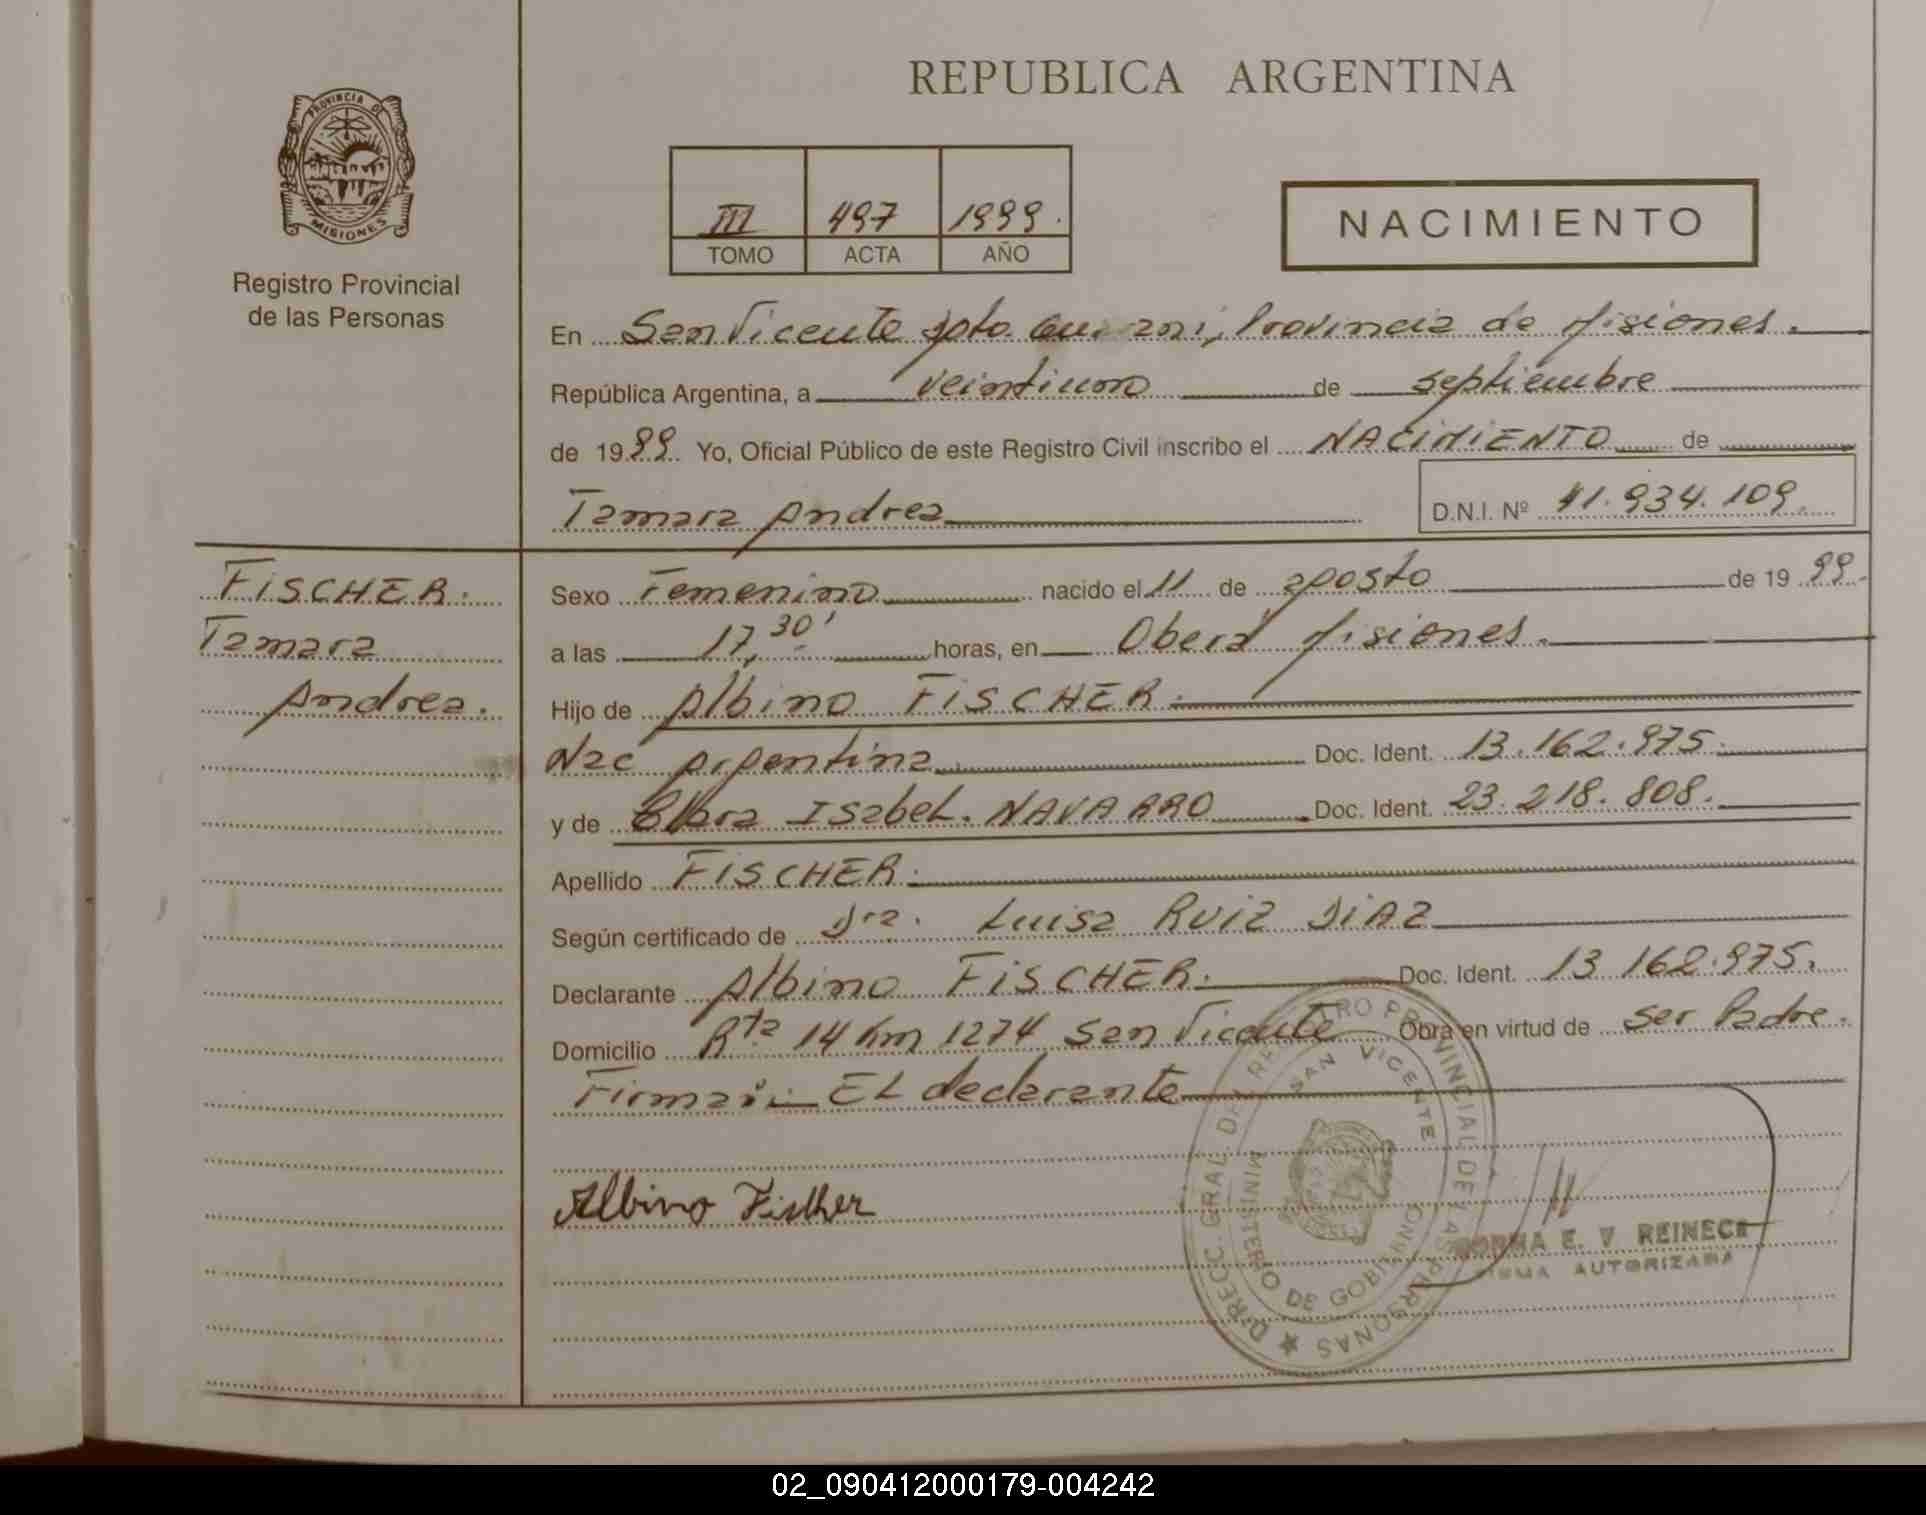 REPUBLICA ARGENTINA
PROVINCIA DE
MISIONES
Registro Provincial
de las Personas
III 497 1999.
TOMO ACTA AÑO
NACIMIENTO
En San Vicente Dpto. Guarani, Provincia de Misiones.
República Argentina, a veintiuno de septiembre
de 1999 Yo, Oficial Público de este Registro Civil inscribo el NACIMIENTO de
Tamara Andrea D.N.I. Nº 41.934.109.
FISCHER.
Tamara
Andrea.
Sexo Femenino nacido el 11 de agosto de 1999.
a las 17,30' horas, en Oberá Misiones.
Hijo de Albino FISCHER.
Nac Argentina Doc. Ident. 13.162.975.
y de Clara Isabel. NAVARRO Doc. Ident. 23.218.808.
Apellido FISCHER.
Según certificado de Dra. Luisa Ruiz DIAZ
Declarante Albino FISCHER. Doc. Ident. 13 162.975.
Domicilio Rta 14 Km 1274 San Vicente Obra en virtud de ser Padre.
Firma: EL declarante
Albino Fischer
DIREC. GRAL. DEL REGISTRO PROVINCIAL DE LAS PERSONAS
SAN VICENTE
MINISTERIO DE GOBIERNO
NORMA E. V. REINECK
FIRMA AUTORIZADA
02_090412000179-004242